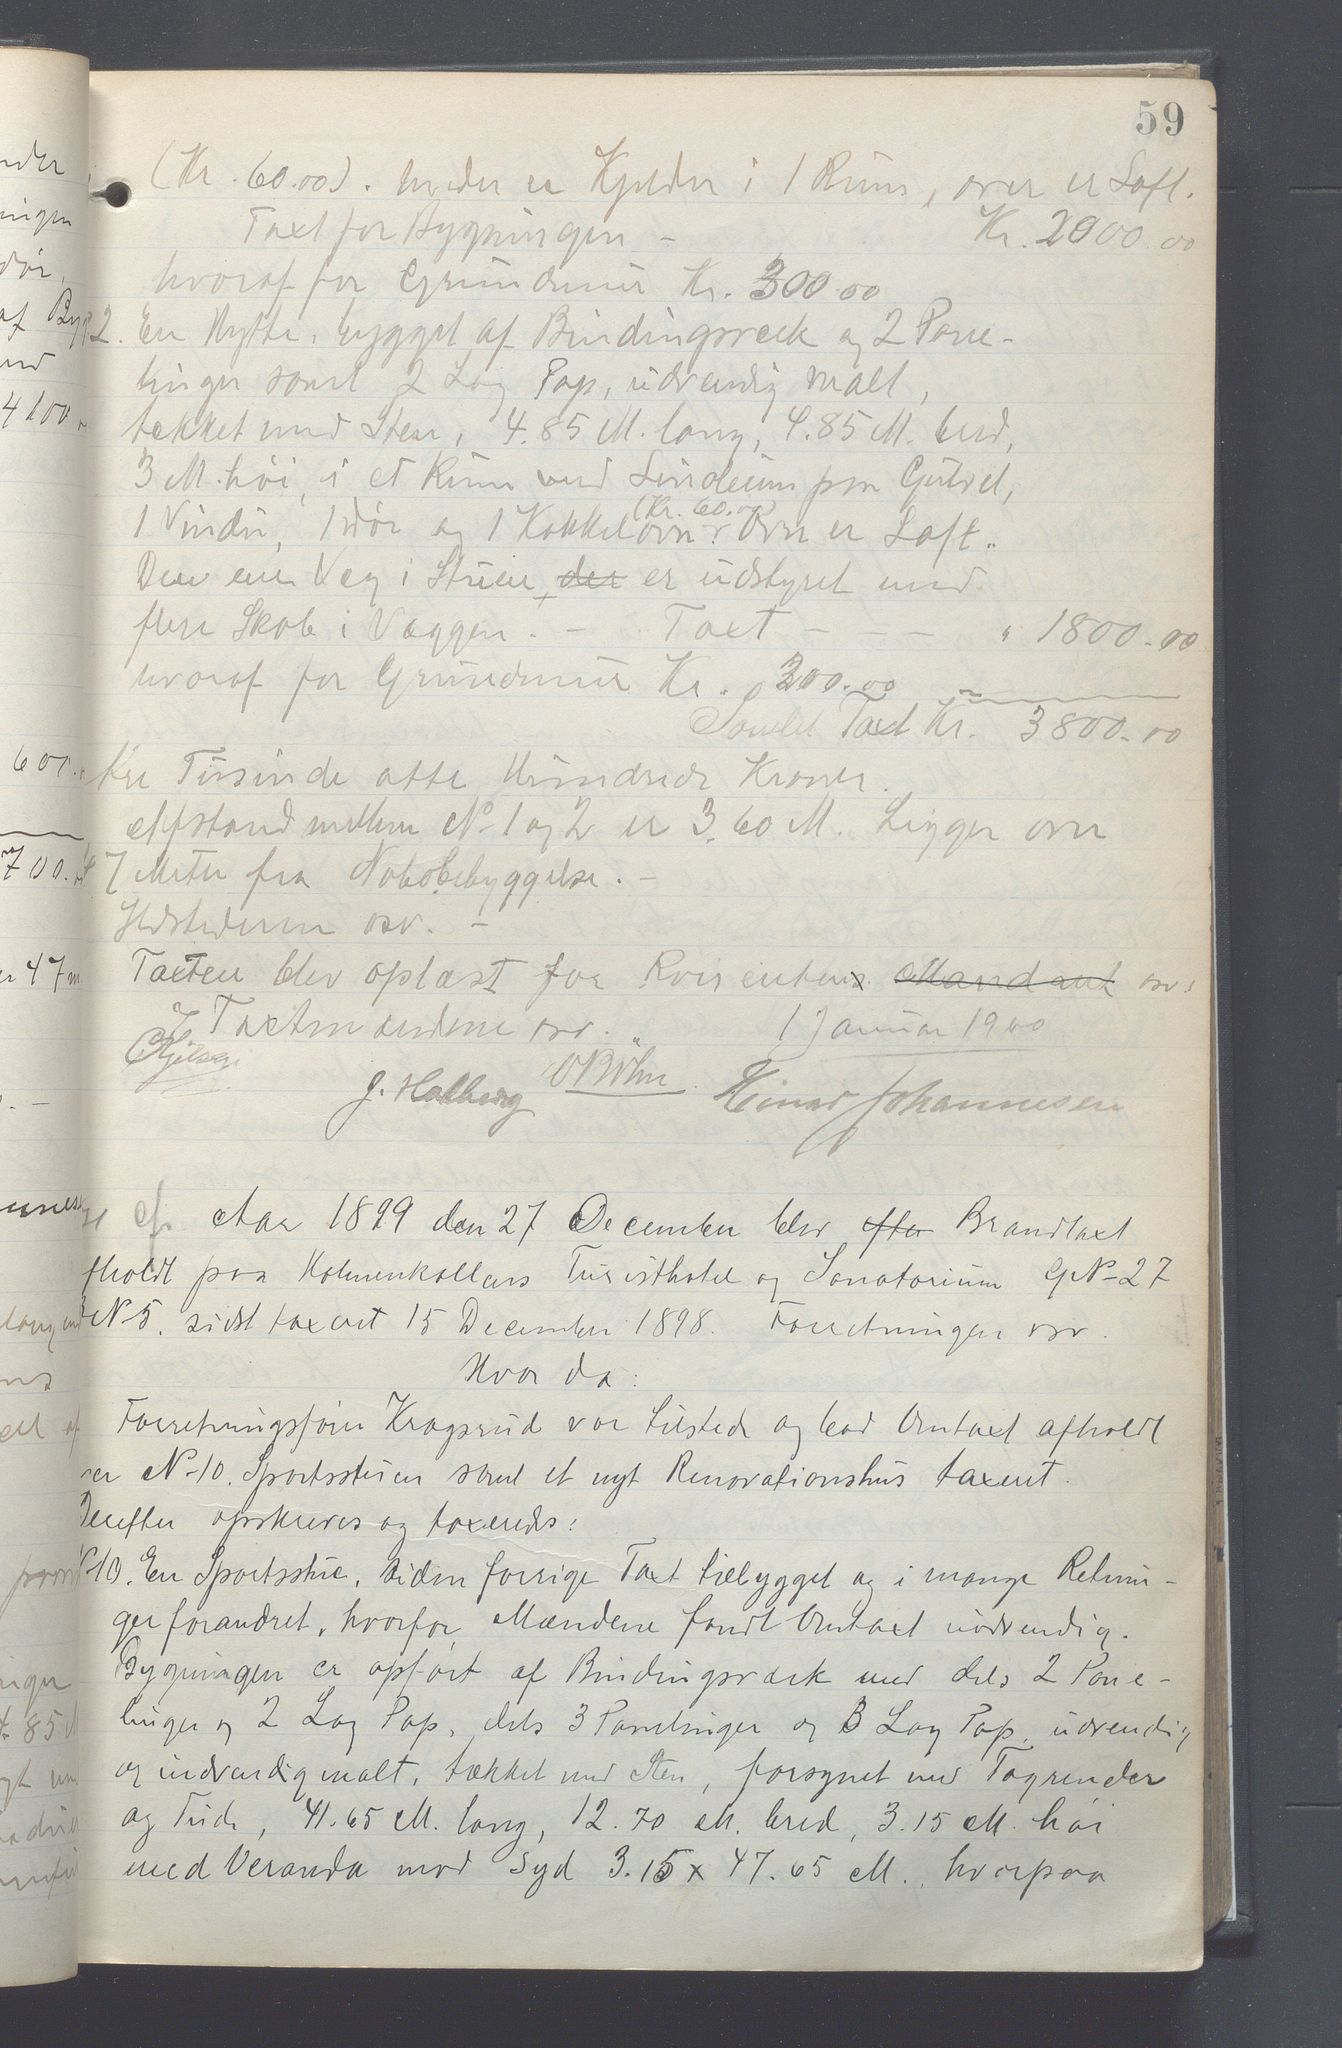 59
(Kr. 60.00). under er Kjelder i 1 Rum, over er Loft.
Taxt for Bygningen - Kr. 2000.00
hvoraf for Grundmur Kr. 300.00
2. En Hytte, bygget af Bindingsverk og 2 Pane-
linger samt 2 Lag Pap, udvendig malt,
tækket med Sten, 4.85 M. lang, 4.85 M. bred,
3 M. høi, i et Rum med Linoleum paa Gulvet,
1 Vindu, 1 Dør og 1 Kakkelovn (Kr. 60.00). Over er Loft.
Den ene Væg i Stuen, der er udstyret med
flere Skab i Væggen. - Taxt - - - " 1800.00
hvoraf for Grundmur Kr. 200.00
Samlet Taxt Kr. 3800.00
tre Tusinde otte Hundrede Kroner.
Afstand mellem No 1 og 2 er 3.60 M. Ligger over
7 Meter fra Nabobebyggelse. -
Ildstederne osv. -
Taxten blev oplæst for Rekvirenten Mandant osv.
Taxtmændene osv. 1 Januar 1900
J. Hallberg O Bøhn Einar Johannesen
Aar 1899 den 27 December blev efter Brandtaxt
afholdt paa Holmenkollens Turisthotel og Sanatorium GN-27
BN-5. sidst taxeret 15 December 1898. Forretningen osv.
Hvor da:
Forretningsfører Kragsrud var tilstede og bad Omtaxt afholdt
over N-10. Sportsstuen samt et nyt Renovationshus taxeret.
Derefter opskreves og taxeredes:
N-10. En Sportsstue, siden forrige Taxt tilbygget og i mange Retnin-
ger forandret, hvorfor Mændene fandt Omtaxt nødvendig.
Bygningen er opført af Bindingsværk med dels 2 Pane-
linger og 2 Lag Pap, dels 3 Panelinger og 3 Lag Pap, udvendig
og indvendig malt, tækket med Sten, forsynet med Tagrender
og Tude, 41.65 M. lang, 12.70 M. bred, 3.15 M. høi
med Veranda mod Syd 3.15 x 47.65 M., hvorpaa